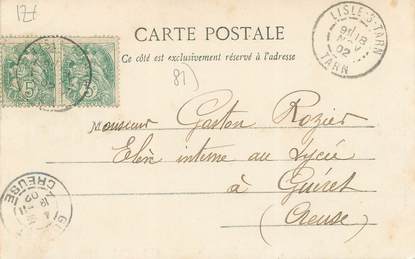 12f
CARTE POSTALE
Ce côté est exclusivement réservé à l'adresse
LISLE-S-TARN
18
02
TARN
5
5
81)
Monsieur Gaston Rozier
Elève interne au Lycée
à Guéret
(Creuse)
CREUSE
02